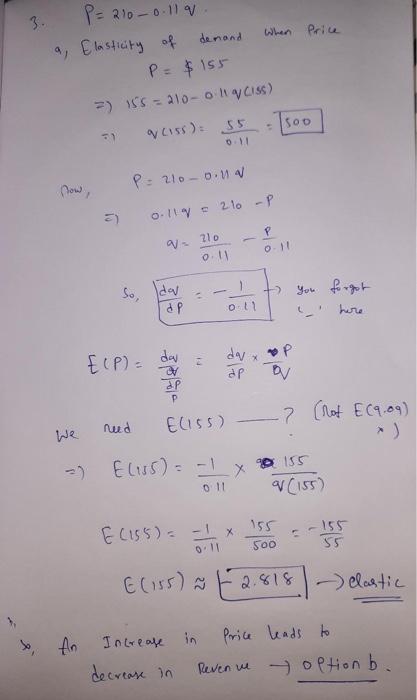 3. P = 210 - 0.11 q.
a, Elasticity of demand when Price
P = $ 155
=) 155 = 210 - 0.11 q(155)
=) q(155) = 55/0.11 = 500
Now, P = 210 - 0.11 q
=) 0.11 q = 210 - P
q = 210/0.11 - P/0.11
So, dq/dP = - 1/0.11 → you forgot
'-' here
E(P) = dq/q / dP/P = dq/dP × P/q
We need E(155) — ? (Not E(9.09)
=) E(155) = -1/0.11 × 155/q(155)
E(155) = -1/0.11 × 155/500 = -155/55
E(155) ≈ -2.818 → elastic.
So, An Increase in Price leads to
decrease in Revenue → option b.